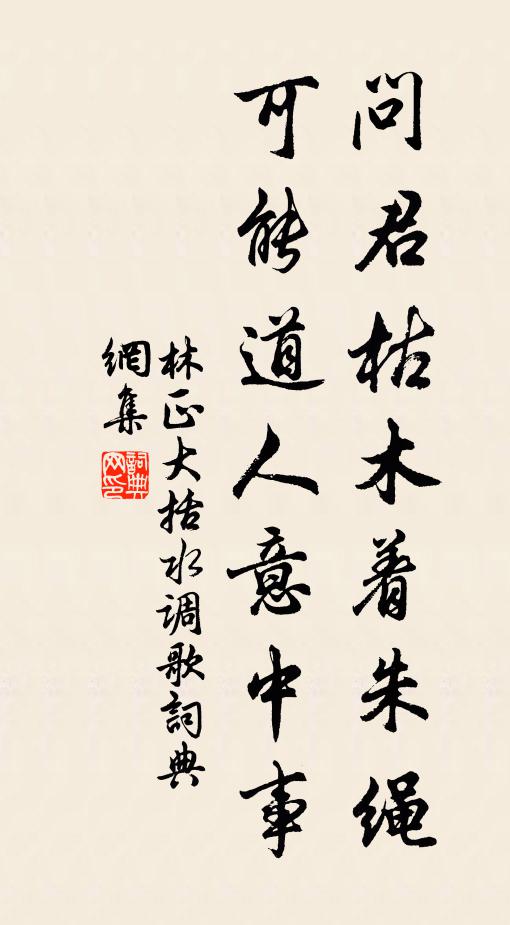 问君枯木着朱绳
可能道人意中事
林正大括水调歌詞典
網集
詞典網印